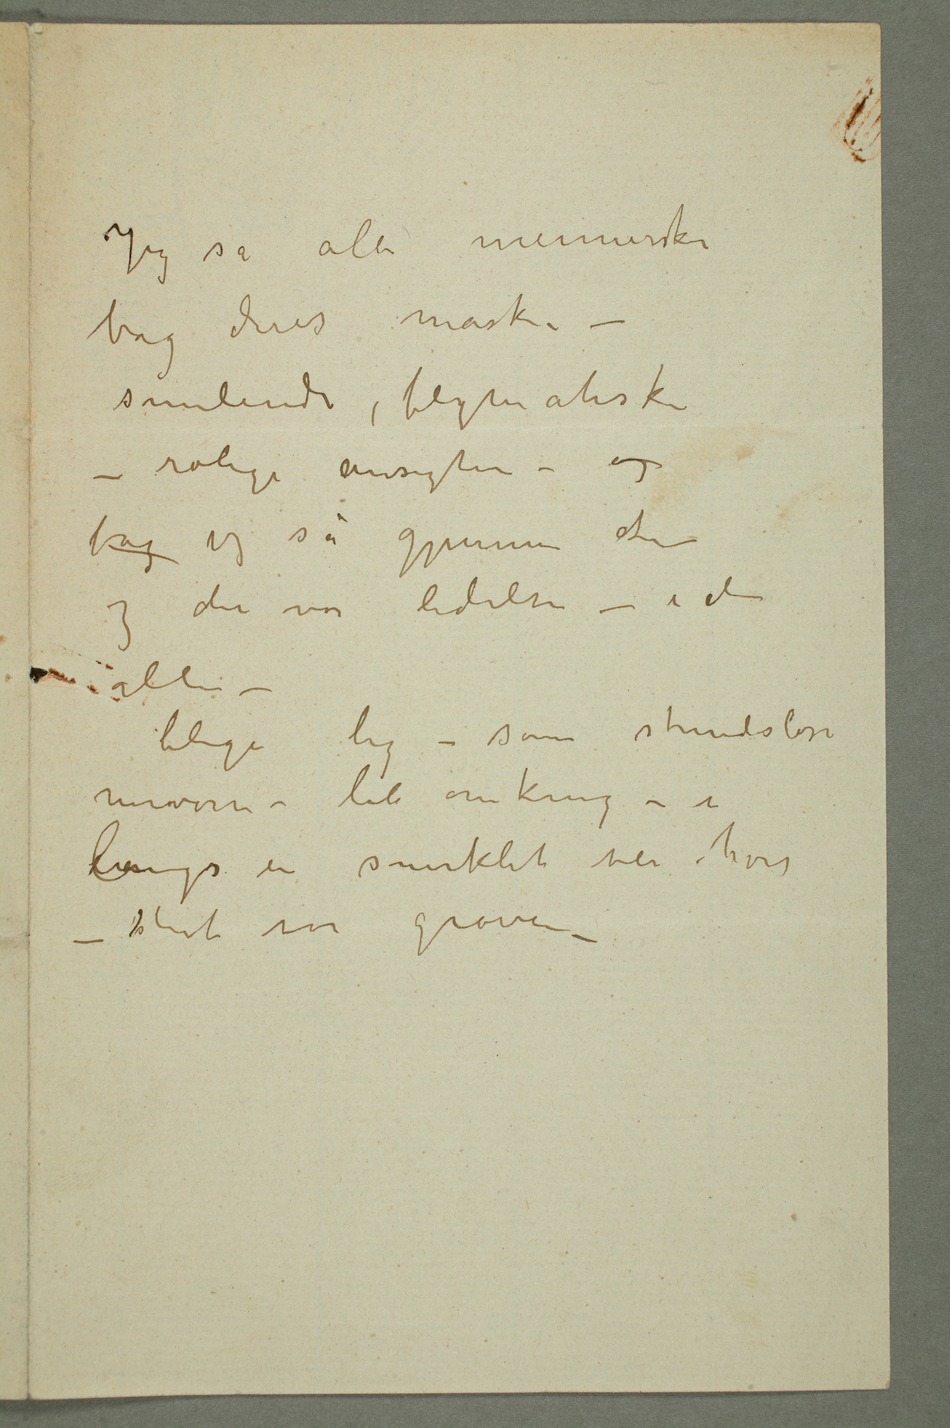 Jeg så alle mennesker
bag deres maske –
smilende, flegmatiske
– rolige ansigter – og
bag jeg så gjennem dem
og der var lidelse – i dem
alle –
blege lig – som stundsløse
nervøse – løb omkring – i
langs en snirklet vei hvis
– slut var graven –